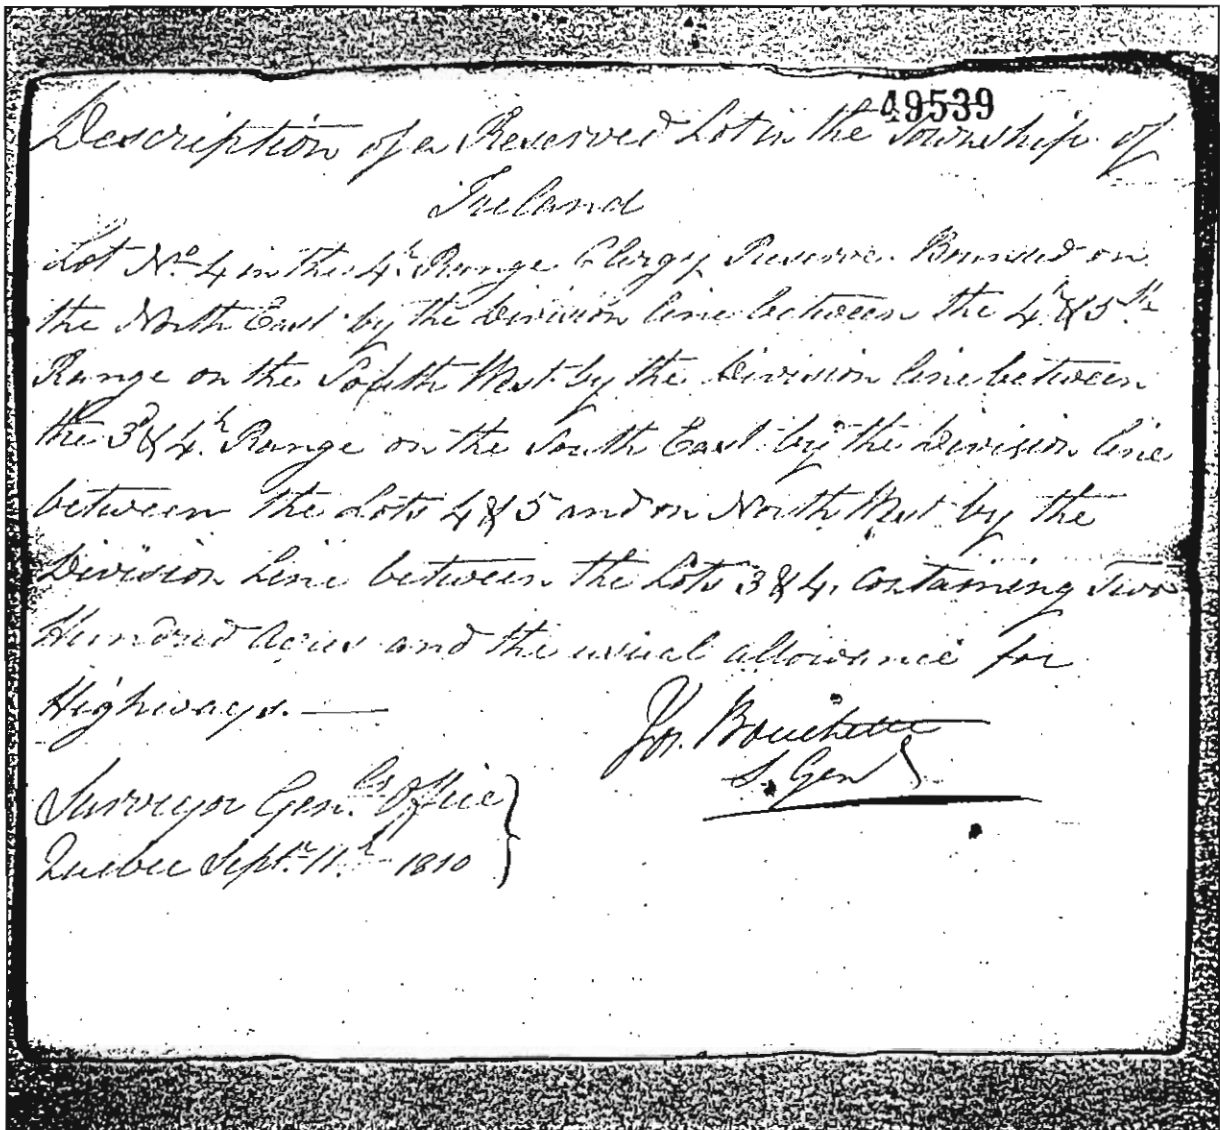 49539
Description of a Reserved Lot in the Township of
Ireland
Lot No. 4 in the 4th Range Clergy Reserve. Bounded on
the North East by the division line between the 4th & 5th
Range on the South West by the Division line between
the 3d & 4th Range on the South East by the Division line
between the Lots 4 & 5 and on North West by the
Division Line between the Lots 3 & 4, Containing Two
Hundred Acres and the usual allowance for
Highways. —
Jos. Bouchette
S. Genl
Surveyor Genls Office
Quebec Septr. 11th 1810